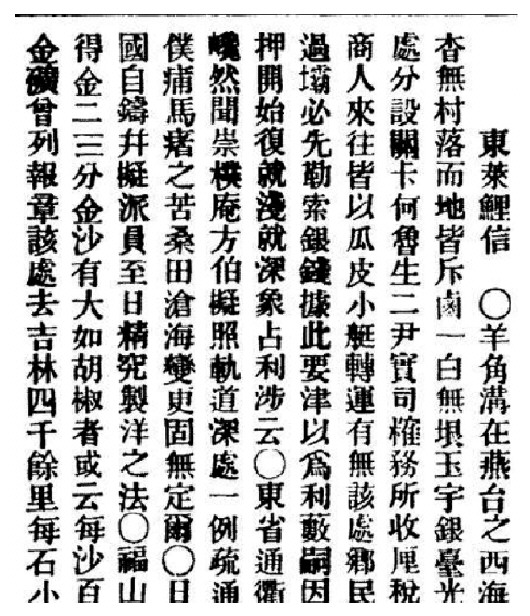 東萊鯉信　〇羊角溝在燕台之西海
杳無村落而地皆斥鹵一白無垠玉宇銀臺光
處分設關卡何魯生二尹實司榷務所收厘稅
商人來往皆以瓜皮小艇轉運有無該處鄉民
過壩必先勒索銀錢據此要津以爲利藪嗣因
押開始復就淺就深象占利涉云〇東省通衢
巉然聞崇樸庵方伯擬照軌道深處一例疏通
僕痡馬瘏之苦桑田滄海變更固無定爾〇日
國自鑄幷擬派員至日精究製洋之法〇福山
得金二三分金沙有大如胡椒者或云每沙百
金礦曾列報章該處去吉林四千餘里每石小